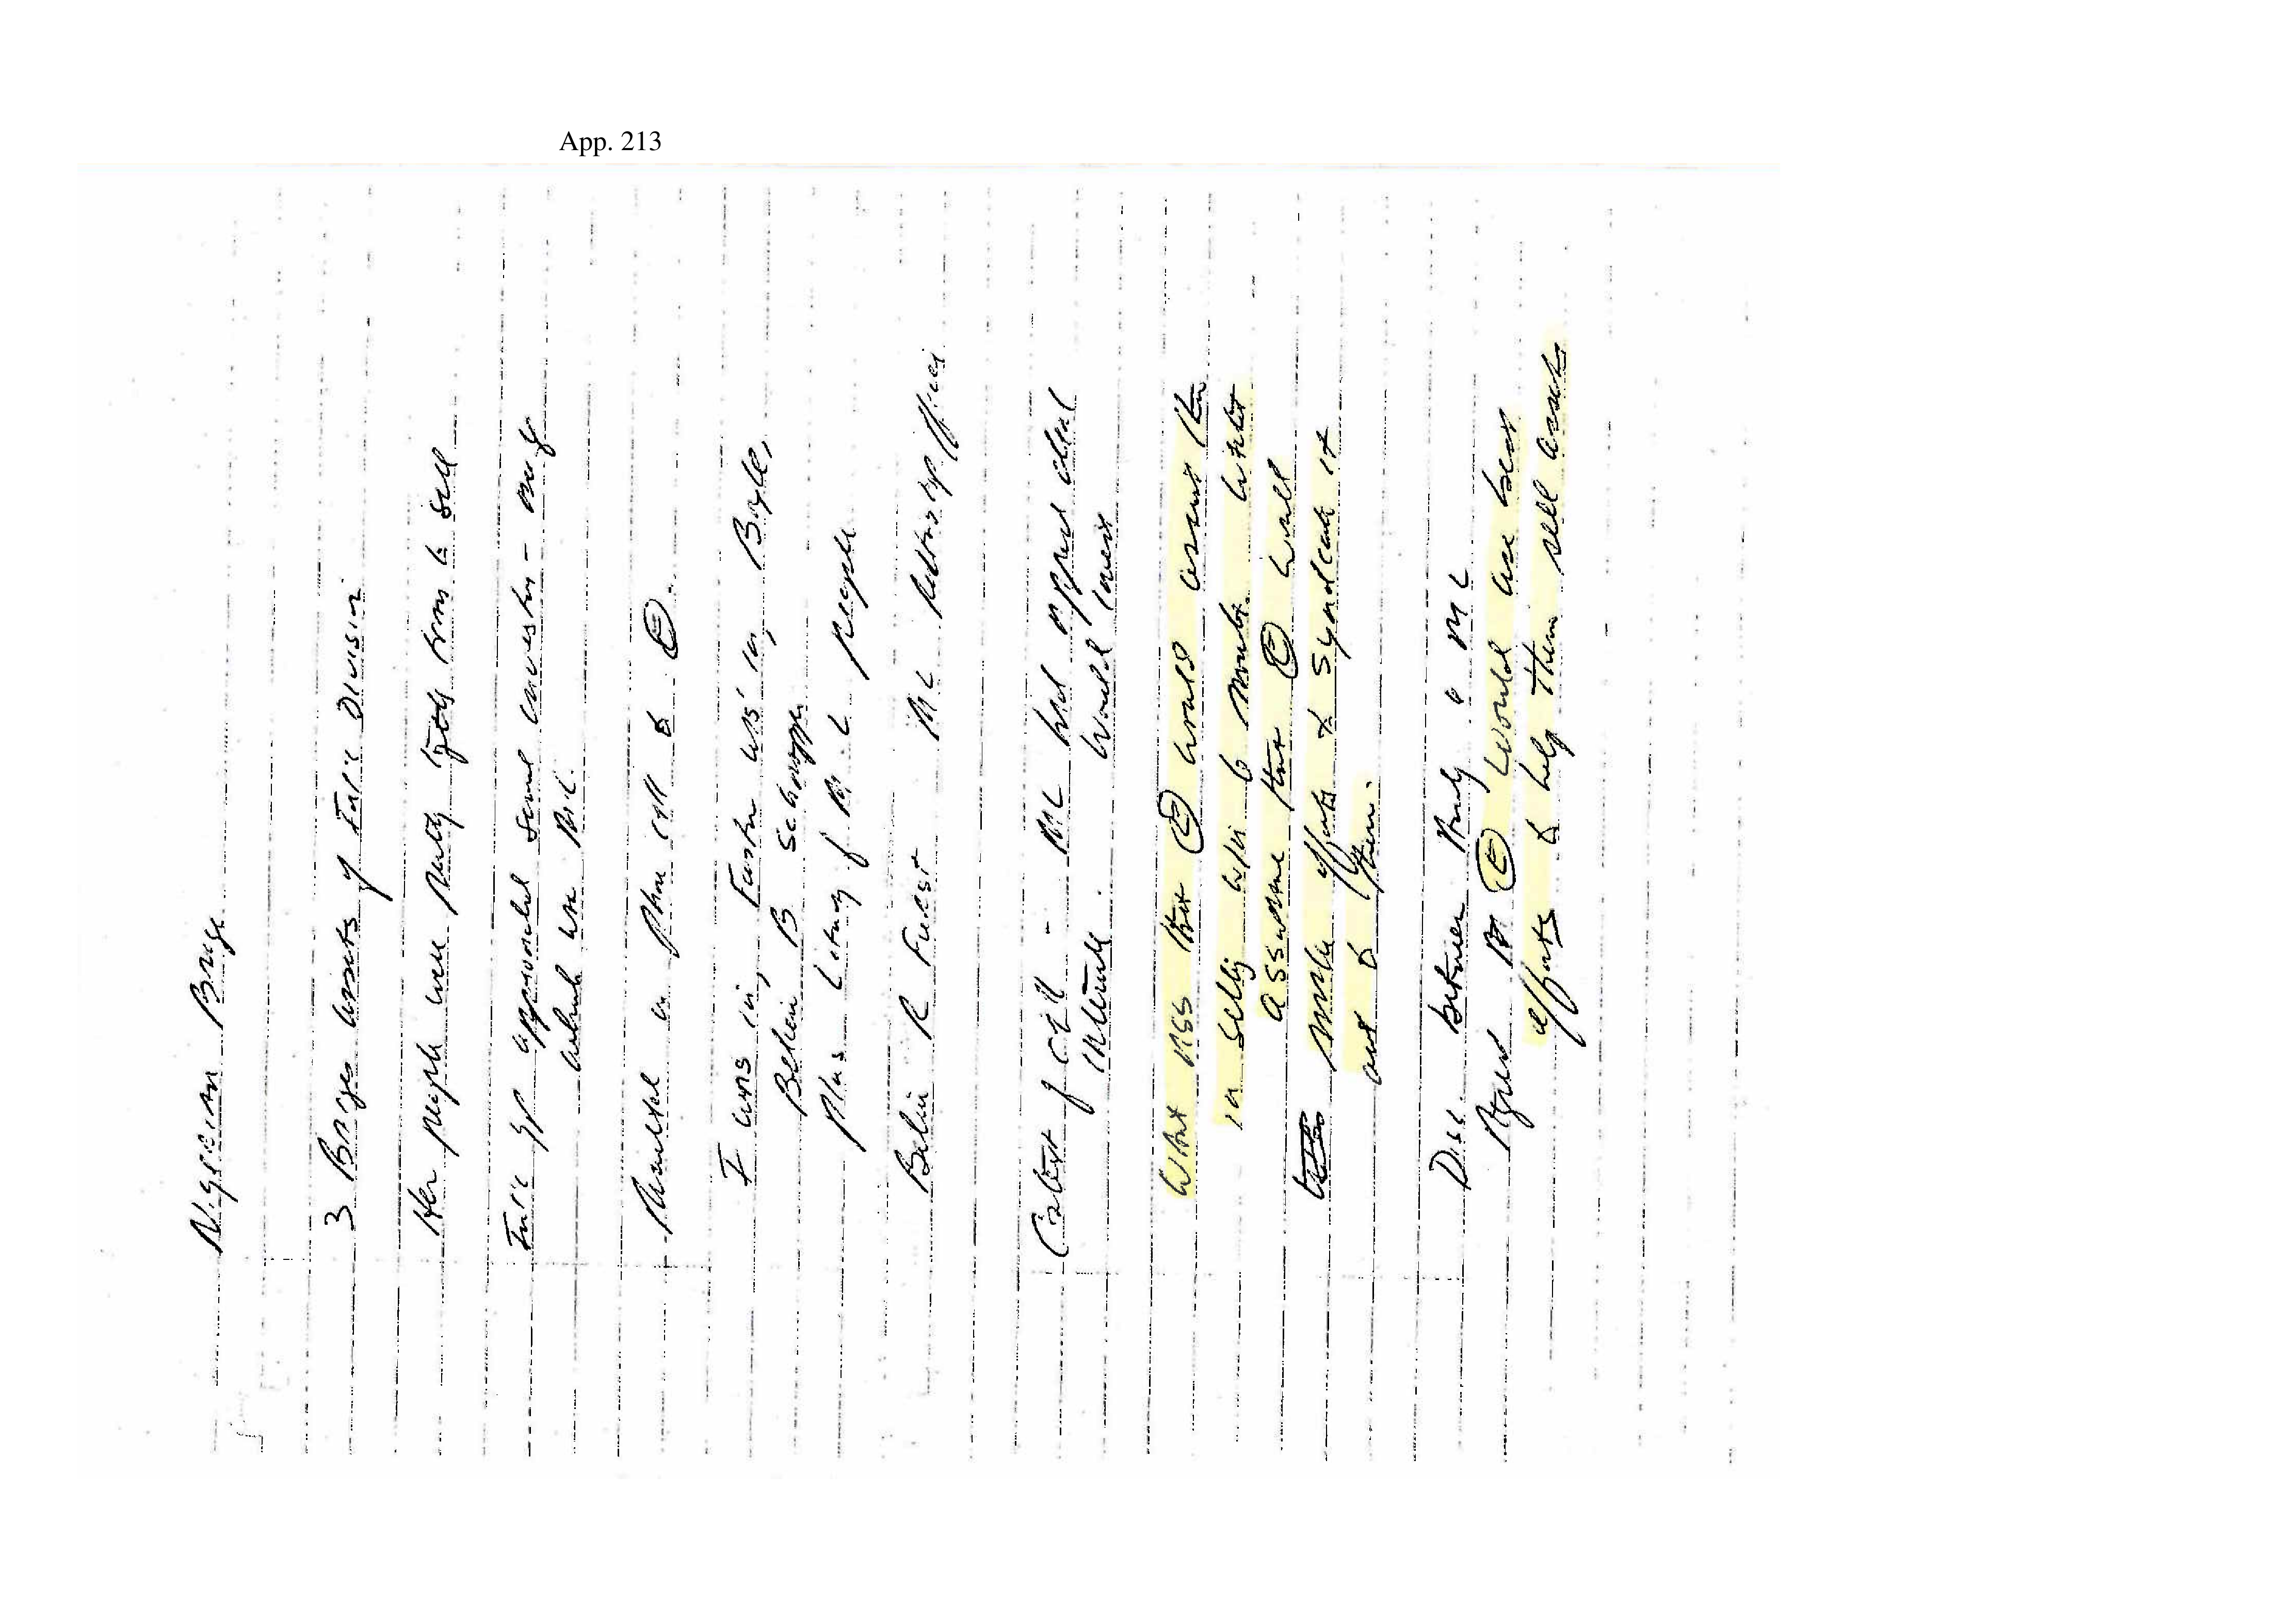 App. 213
Nigerian Barge
3 Barges assets of Int'l Division
Her people were really trying to sell
Int'l gp approached several investors - 
which was M.L.
Resulted in phone call to Ⓔ.
I was in, Fastow was in, Boyle,
Believe B Schaapper
Plus of M.L people
Believe R Furst ML
Context of call - ML had appd deal
internal. would invest
What was that Ⓔ would assist them
in selling w/in 6 months. What
assurance that Ⓔ would
make efforts to syndicate it
out to them.
Disc. between Andy & ML
Agreed Ⓔ would use best
efforts to help them sell assets